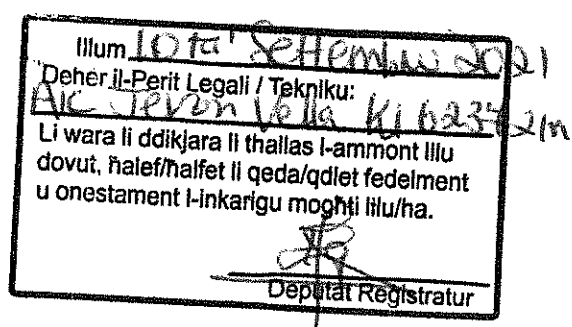 Illum 10 ta' Settembru 2021
Deher il-Perit Legali / Tekniku:
A/C Jevon Vella KI 62372M
Li wara li ddikjara li tħallas l-ammont lilu
dovut, ħalef/ħalfet li qeda/qdiet fedelment
u onestament l-inkarigu mogħti lilu/ha.
Deputat Reġistratur